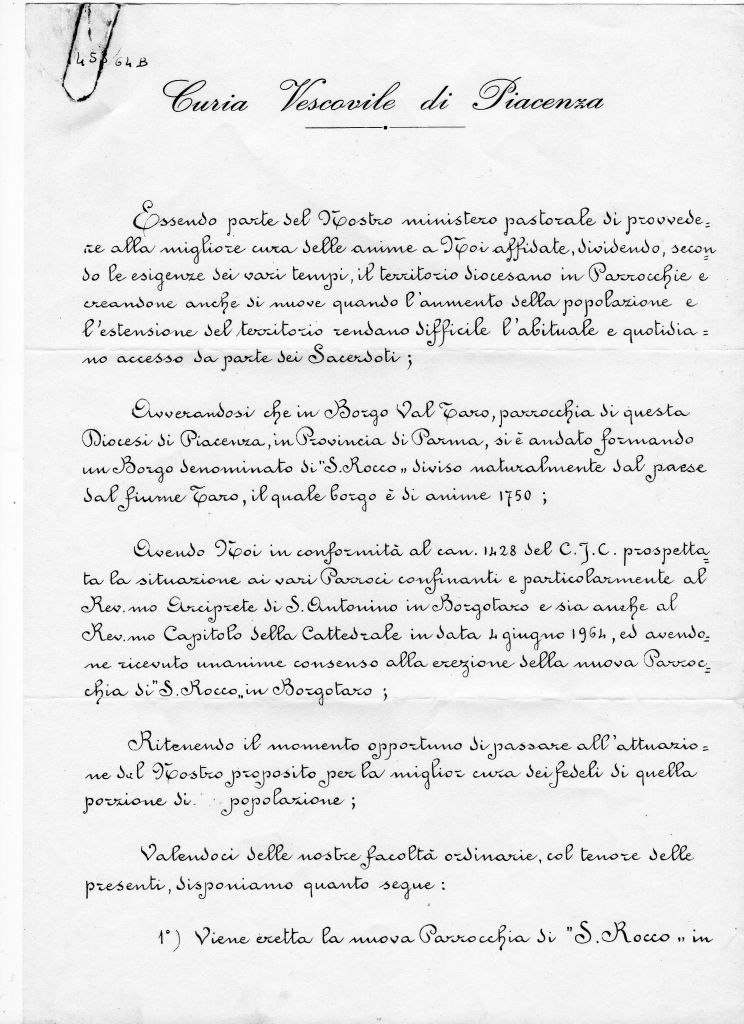 458/64B
Curia Vescovile di Piacenza
Essendo parte del Nostro ministero pastorale di provvede=
re alla migliore cura delle anime a Noi affidate, dividendo, secon=
do le esigenze dei vari tempi, il territorio diocesano in Parrocchie e
creandone anche di nuove quando l'aumento della popolazione e
l'estensione del territorio rendano difficile l'abituale e quotidia=
no accesso da parte dei Sacerdoti;
Avverandosi che in Borgo Val Taro, parrocchia di questa
Diocesi di Piacenza, in Provincia di Parma, si è andato formando
un Borgo denominato di "S. Rocco„ diviso naturalmente dal paese
dal fiume Taro, il quale borgo è di anime 1750;
Avendo Noi in conformità al can. 1428 del C.J.C. prospetta=
ta la situazione ai vari Parroci confinanti e particolarmente al
Rev.mo Arciprete di S. Antonino in Borgotaro e sia anche al
Rev.mo Capitolo della Cattedrale in data 4 giugno 1964, ed avendo=
ne ricevuto unanime consenso alla erezione della nuova Parroc=
chia di "S. Rocco„ in Borgotaro;
Ritenendo il momento opportuno di passare all'attuazio=
ne del Nostro proposito per la miglior cura dei fedeli di quella
porzione di popolazione;
Valendoci delle nostre facoltà ordinarie, col tenore delle
presenti, disponiamo quanto segue:
1°) Viene eretta la nuova Parrocchia di "S. Rocco„ in